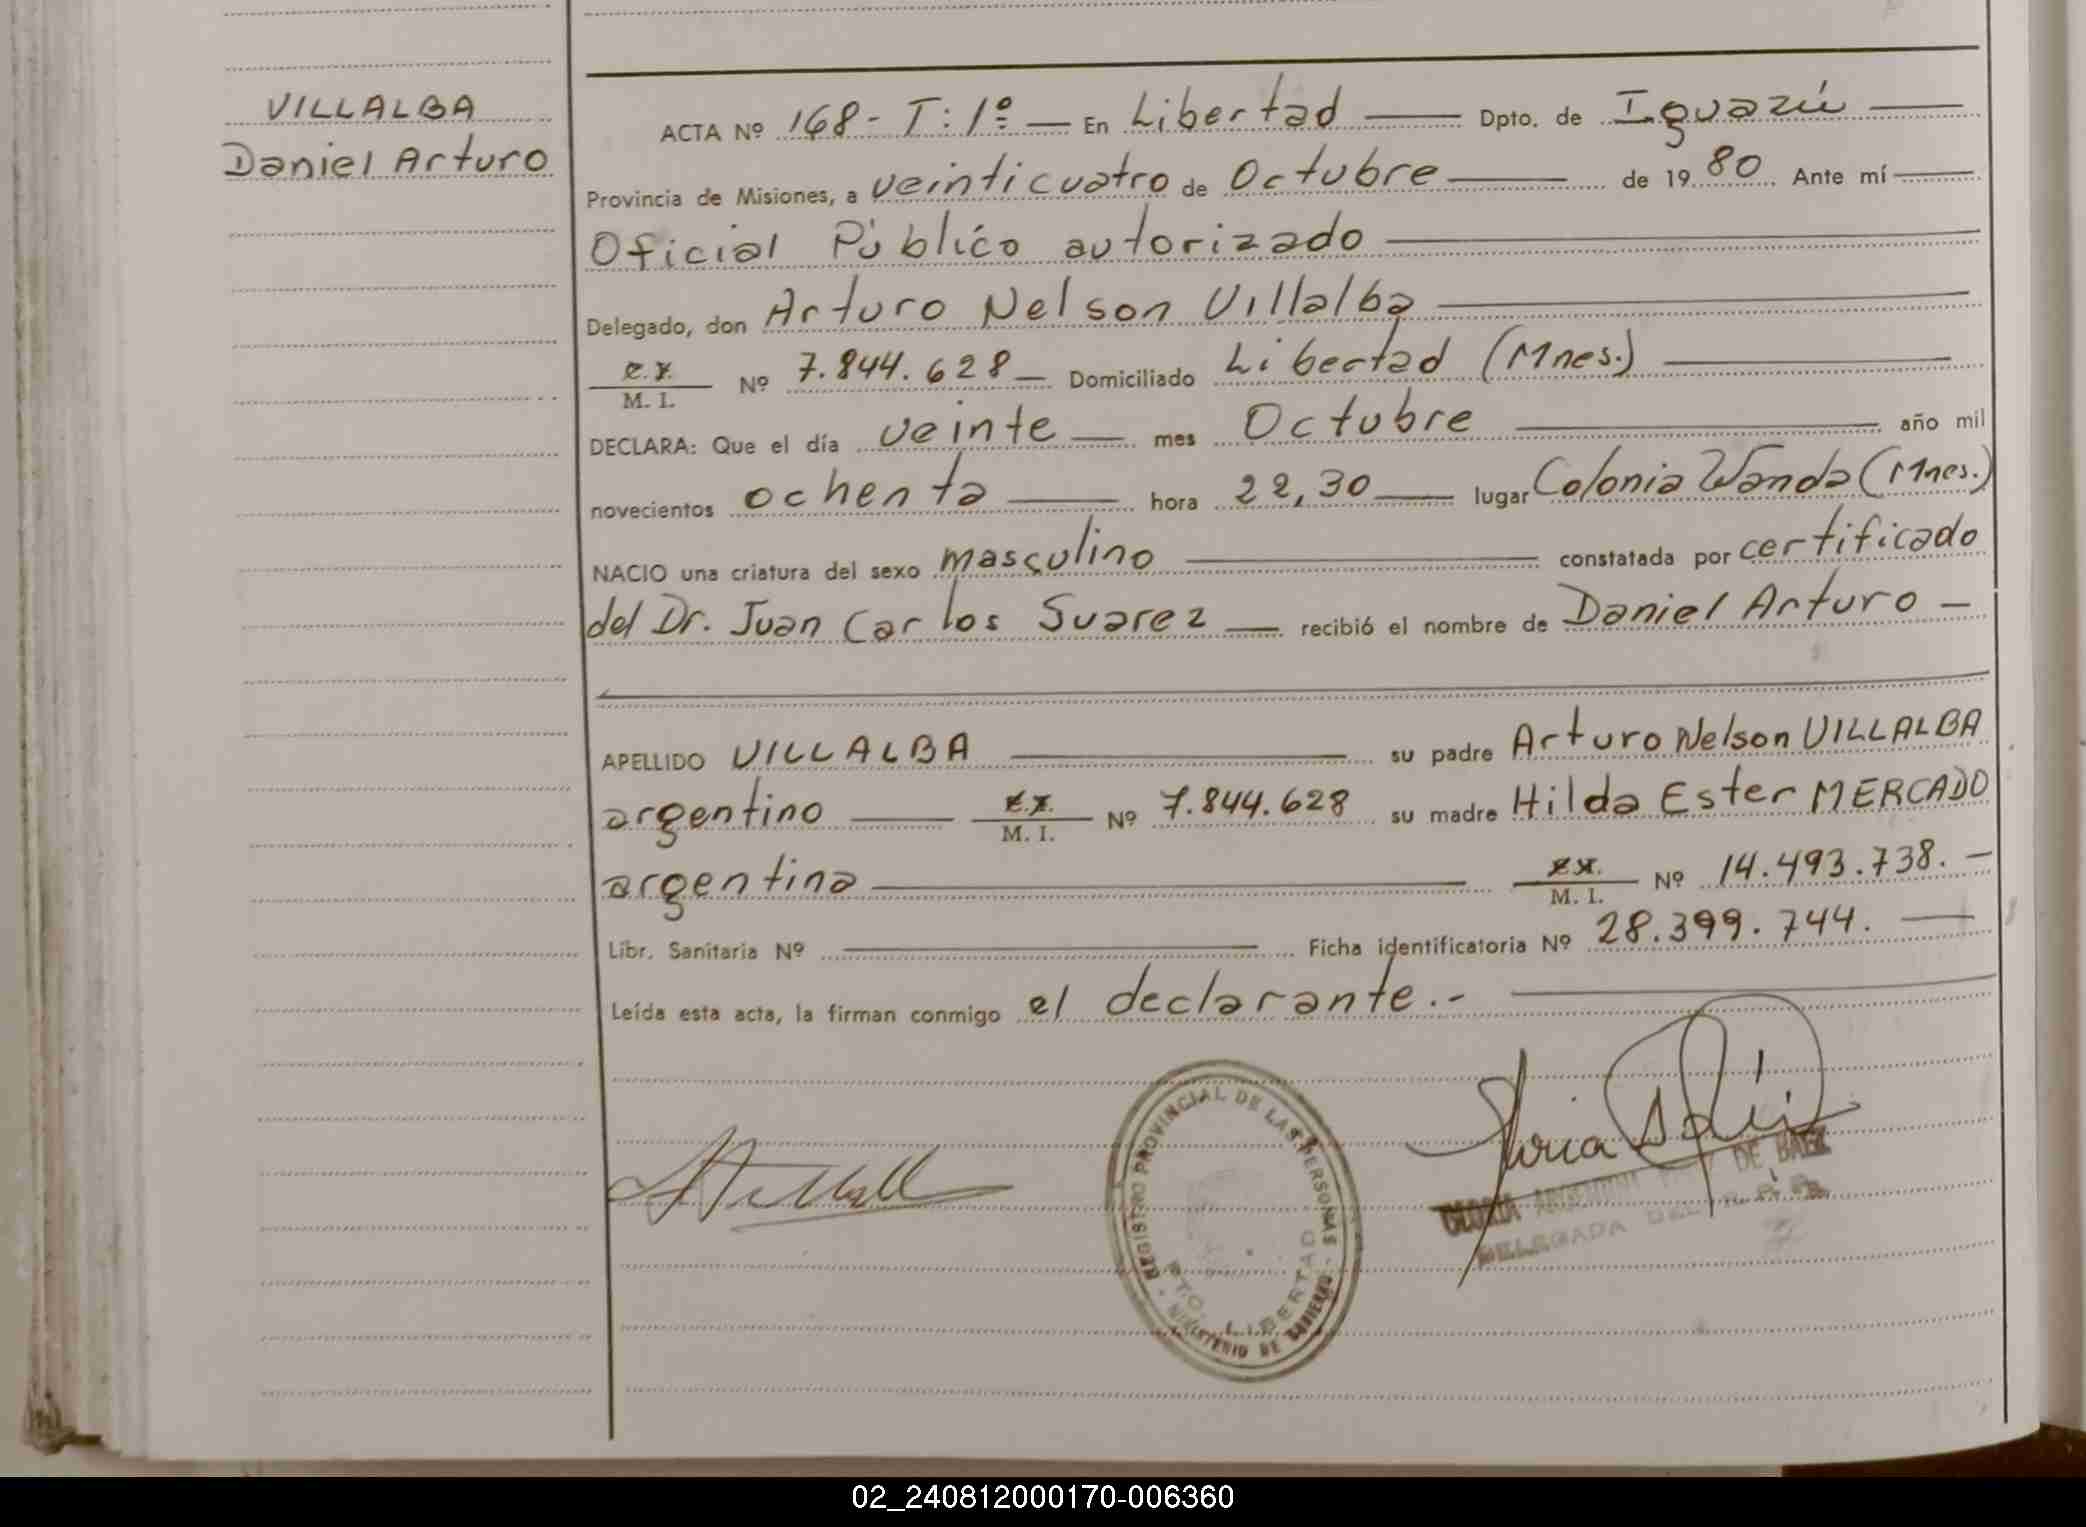 VILLALBA
Daniel Arturo
ACTA Nº 168- T: 1º En Libertad Dpto. de Iguazú
Provincia de Misiones, a veinticuatro de Octubre de 1980 Ante mí
Oficial Público autorizado
Delegado, don Arturo Nelson Villalba
M. I. Nº 7.844.628 Domiciliado Libertad (Mnes.)
DECLARA: Que el día veinte mes Octubre año mil
novecientos ochenta hora 22,30 lugar Colonia Wanda (Mnes.)
NACIO una criatura del sexo masculino constatada por certificado
del Dr. Juan Carlos Suarez recibió el nombre de Daniel Arturo
APELLIDO VILLALBA su padre Arturo Nelson VILLALBA
argentino M. I. Nº 7.844.628 su madre Hilda Ester MERCADO
argentina M. I. Nº 14.493.738.
Libr. Sanitaria Nº Ficha identificatoria Nº 28.399.744.
Leída esta acta, la firman conmigo el declarante.-
REGISTRO PROVINCIAL DE LAS PERSONAS
PTO. LIBERTAD
MINISTERIO DE GOBIERNO
GLORIA ARGENTINA DE BAEZ
DELEGADA DEL
02_240812000170-006360